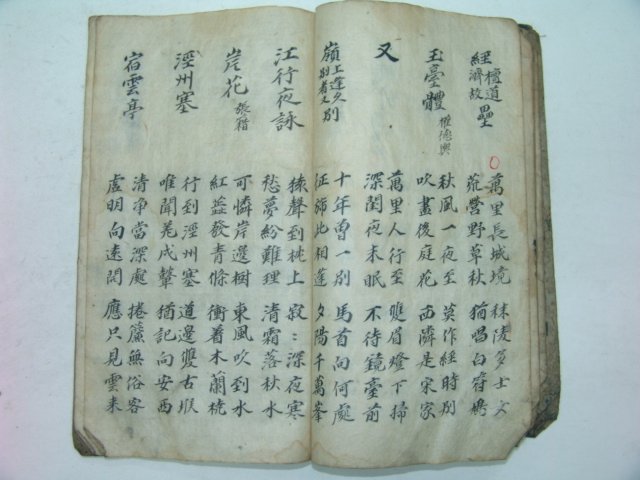 經檀道濟故壘
萬里長城境 秣陵多士女
荒營野草秋 猶唱白符鳩
玉臺體 權德輿
秋風一夜至 莫作經時別
吹盡後庭花 西隣是宋家
又
萬里人行至 雙眉燈下掃
深閨夜未眠 不待鏡臺前
嶺上逢久別者又別
十年曾一別 馬首向何處
征路此相逢 夕陽千萬峯
江行夜詠
猿聲到枕上 寂〻深夜寒
愁夢紛難理 清霜落秋水
岸花 張籍
可憐岸邊樹 東風吹到水
紅蘂發青條 衝着木蘭橈
涇州塞
行到涇州塞 道邊雙古堠
唯聞羌戍鼙 猶記向安西
宿雲亭
清净當深處 捲簾無俗客
虛明向遠開 應只見雲来